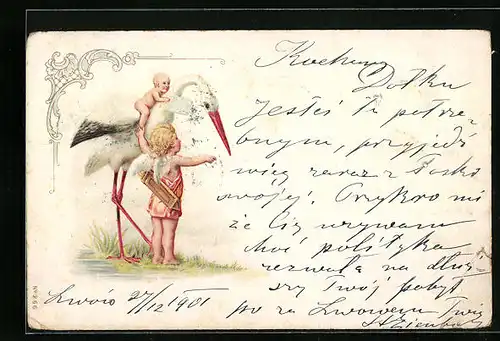 Kochany
Dolku
Jesteś tu potrze-
bnym, przyjedź
więc zaraz z łaski
swojej. Przykro mi
że Cię wzywam
choć polityka
zezwala na dłuż-
szy Twój pobyt
po za Lwowem Twój
Lwów 27/12 1901
No 266